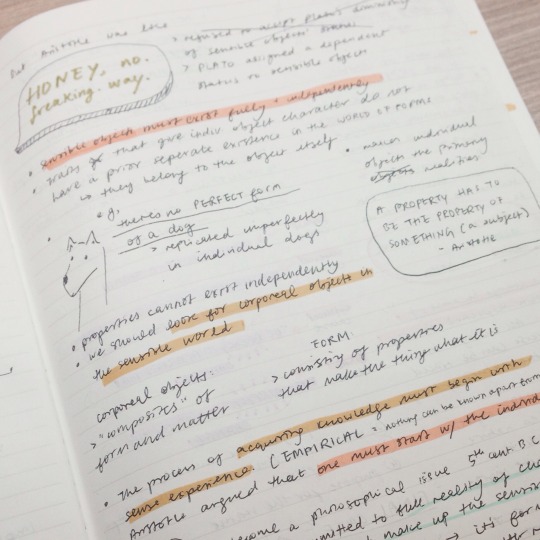 But Aristotle was like
HONEY, no.
freaking. way.
> refused to accept Plato's
of sensible objects'
> PLATO assigned a dependent
status on sensible objects
• sensible objects must exist fully & independently
• traits that give indiv. object character do not
have a prior seperate existence in the WORLD OF FORMS
↳ they belong to the object itself
• individual
objects the primary
objects realities
e.g.
• there's no PERFECT form
of a dog
> replicated imperfectly
in individual dogs
A PROPERTY HAS TO
BE THE PROPERTY OF
SOMETHING (a subject)
- Aristotle
• properties cannot exist independently
• we should look for corporeal objects in
the sensible world
corporeal objects:
> "composites" of
form and matter
FORM:
> consisting of properties
that make the thing what it is
• the process of acquiring knowledge must begin with
sense experience. (EMPIRICAL = nothing can be known apart from
Aristotle argued that one must start w/ the
become a philosophical issue 5th cent B.C
to full reality of
make up the
→ its